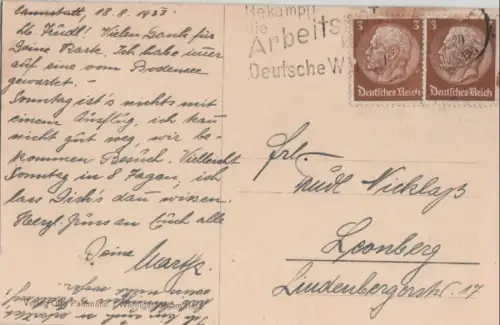 Cannstatt, 18. 8. 1933
Lb. Trudl! Vielen Dank für
Deine Karte. Ich habe immer
auf eine vom Bodensee
gewartet. -
Sonntag ist's nichts mit
einem Ausflug, ich kann
nicht gut weg, wir be-
kommen Besuch. Vielleicht
Sonntag in 8 Tagen, ich
lass Dich's dann wissen.
Herzl. Grüss an Euch alle
Deine
Martha
Bekämpft
die
Arbeits
Deutsche W
3
Deutsches Reich
3
Deutsches Reich
Frl.
Trudl Nicklaß
Leonberg
Lindenbergerstr. 17